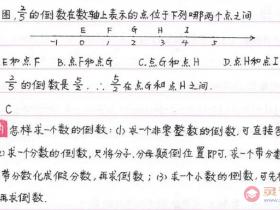 图,2/5的倒数在数轴上表示的点位于下列哪两个点之间
E F G H I
-1 0 1 2 3 4 5
E和点F B.点F和点G C.点G和点H D.点H和点I
2/5的倒数是5/2.∴5/2在点G和点H之间.
C
怎样求一个数的倒数:(1)求一个非零整数的倒数,可直接
求一个分数的倒数,只将分子、分母颠倒位置即可.求一个带分数
带分数化成假分数,再求倒数;(3)求一个小数的倒数,可先
再求倒数.